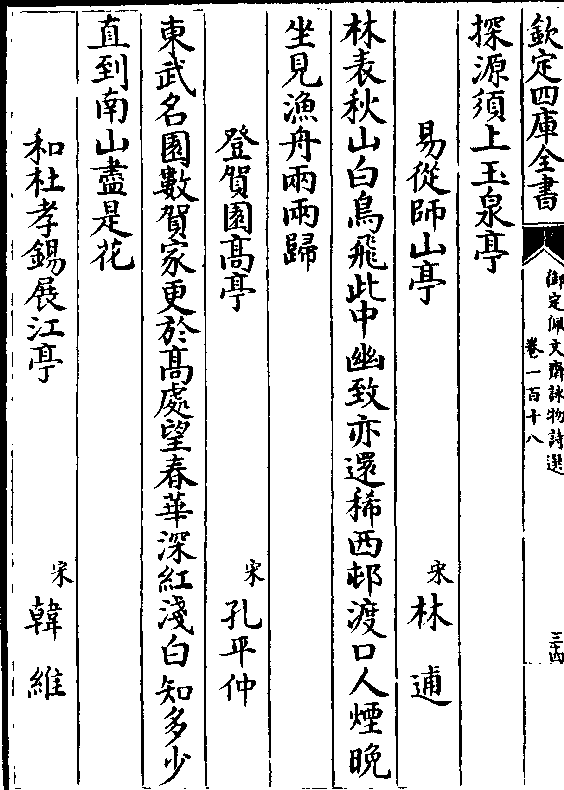 欽定四庫全書
御定佩文齋詠物詩選
卷一百十八
三十四
探源須上玉泉亭
易從師山亭 宋 林逋
林表秋山白鳥飛此中幽致亦還稀西邨渡口人煙晚
坐見漁舟兩兩歸
登賀園高亭 宋 孔平仲
東武名園數賀家更於高處望春華深紅淺白知多少
直到南山盡是花
和杜孝錫展江亭 宋 韓維